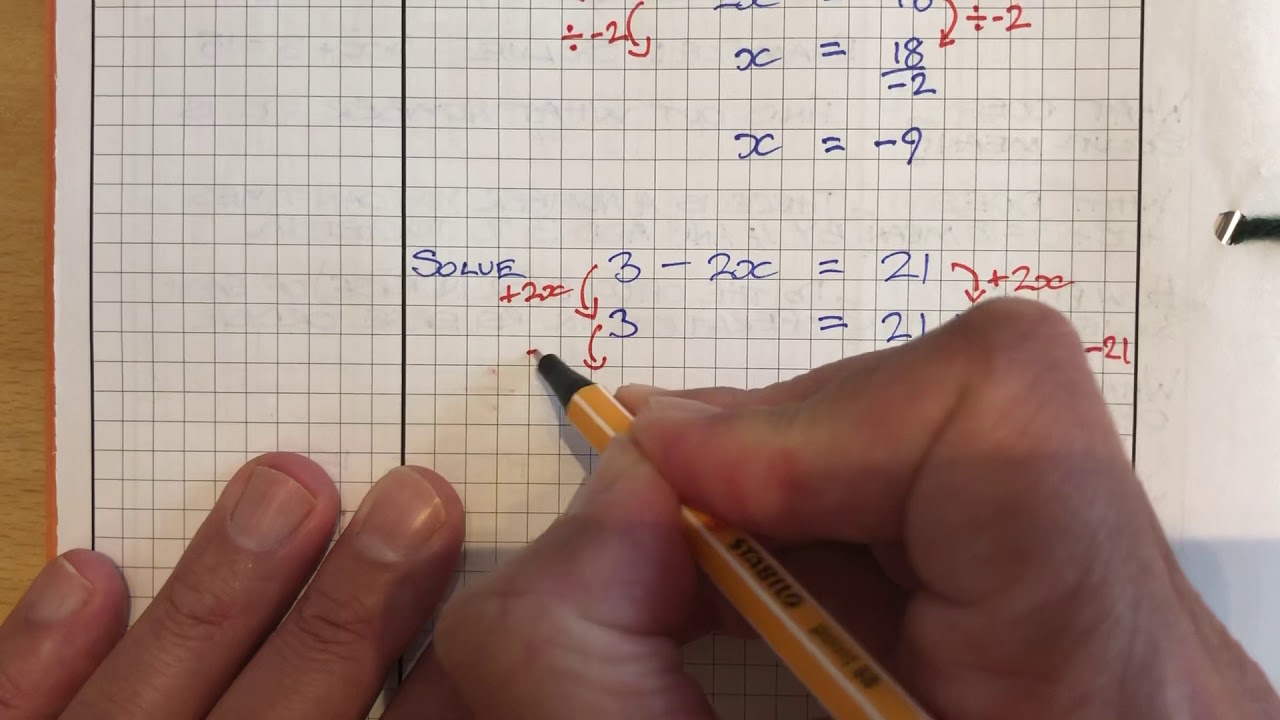 ÷ -2 ÷ -2
x = 18/-2
x = -9
SOLVE 3 - 2x = 21
+2x +2x
3 = 21
-21
STABILO
point 88